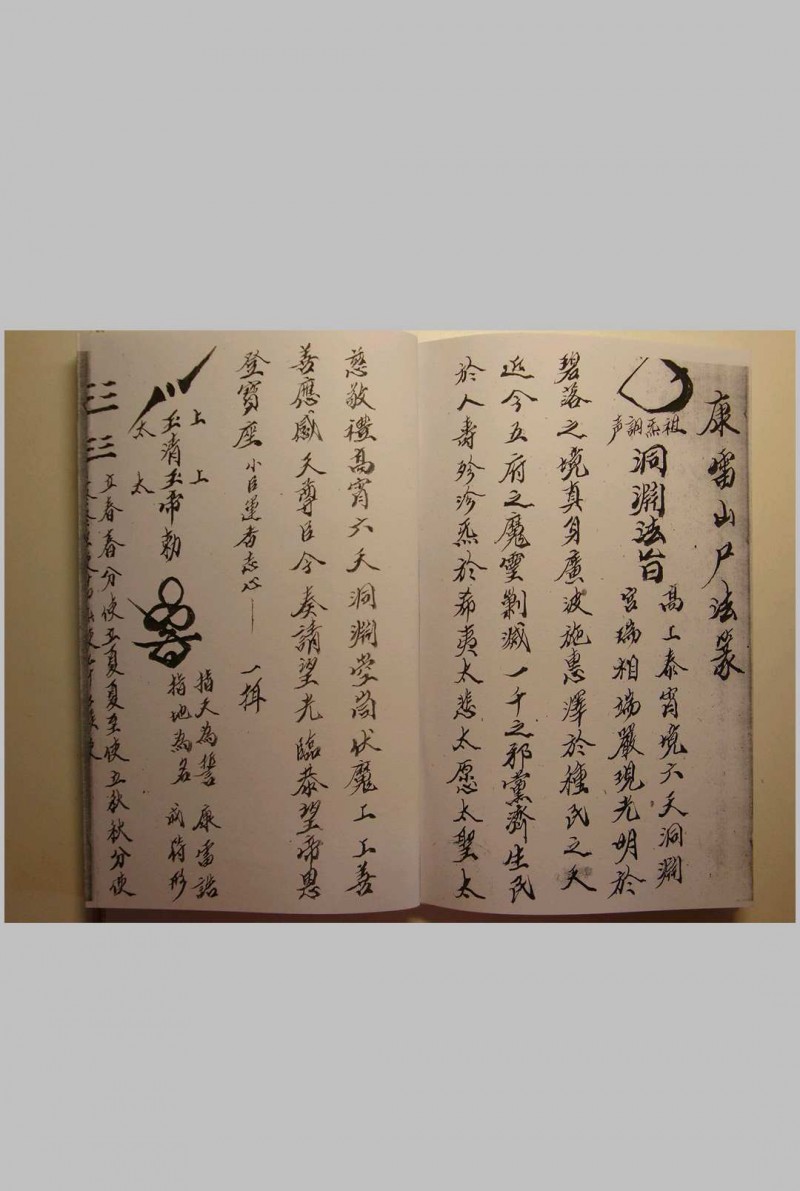 康雷山尸法篆
祖炁詔声
洞渊法旨
高上泰宵境六天洞渊
宫瑞相端嚴現光明於
碧落之境真身廣波施惠澤於種民之天
近今五府之魔靈剿滅一千之邪黨濟生民
於人壽殄沴炁於希夷太悲太愿太聖太
慈敬禮高宵六天洞渊 伏魔上上善
善應感天尊臣今奏請望光臨恭望帝恩
登寶座 小臣運香志心 一揖
上 上
玉清玉帝勅
太 太
指天為誓 康雷詣
指地為名 武符形
立春春分使立夏夏至使立秋秋分使